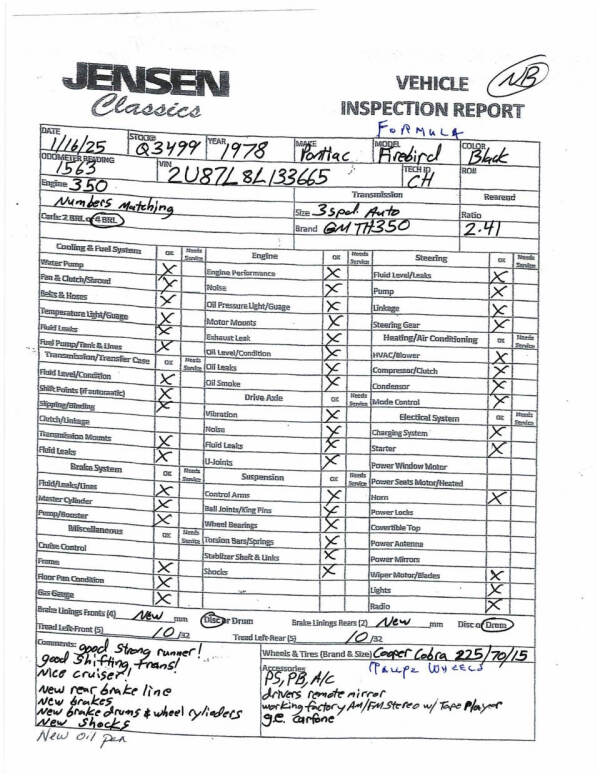 JENSEN
Classics
VEHICLE
INSPECTION REPORT
NB
FORMULA
DATE 1/16/25 STOCK# Q3499 YEAR 1978 MAKE Pontiac MODEL Firebird COLOR Black
ODOMETER READING 1563 VIN 2U87L8L133665 TECH ID CH RO#
Engine 350 Transmission Rearend
Numbers Matching Size 3 spd. Auto Ratio
Carb: 2 BRL or 4 BRL Brand GM TH350 2.41
Cooling & Fuel System OK Needs Service Engine OK Needs Service Steering OK Needs Service
Water Pump X Engine Performance X Fluid Level/Leaks X
Fan & Clutch/Shroud X Noise X Pump X
Belts & Hoses X Oil Pressure Light/Guage X Linkage X
Temperature Light/Guage X Motor Mounts X Steering Gear X
Fluid Leaks X Exhaust Leak X Heating/Air Conditioning OK Needs Service
Fuel Pump/Tank & Lines X Oil Level/Condition X HVAC/Blower X
Transmission/Transfer Case OK Needs Service Oil Leaks X Compressor/Clutch X
Fluid Level/Condition X Oil Smoke X Condensor X
Shift Points (if automatic) X Drive Axle OK Needs Service Mode Control X
Slipping/Binding X Vibration X Electical System OK Needs Service
Clutch/Linkage Noise X Charging System X
Transmission Mounts X Fluid Leaks X Starter X
Fluid Leaks X U-Joints X Power Window Motor
Brake System OK Needs Service Suspension OK Needs Service Power Seats Motor/Heated
Fluid/Leaks/Lines X Control Arms X Horn X
Master Cylinder X Ball Joints/King Pins X Power Locks
Pump/Booster X Wheel Bearings X Covertible Top
Miscellaneous OK Needs Service Torsion Bars/Springs X Power Antenna
Cruise Control Stablizer Shaft & Links X Power Mirrors
Frame X Shocks X Wiper Motor/Blades X
Floor Pan Condition X Lights X
Gas Gauge X Radio X
Brake Linings Fronts (4) New mm Disc or Drum Brake Linings Rears (2) New mm Disc or Drum
Tread Left-Front (5) 10/32 Tread Left-Rear (5) 10/32
Comments: good strong runner! Wheels & Tires (Brand & Size) Cooper Cobra 225/70/15
good shifting trans! Accessories
Nice cruiser! PS, PB, A/C
New rear brake line drivers remote mirror
New brakes working factory AM/FM Stereo w/ Tape Player
New brake drums & wheel cylinders g.e. carfone
New shocks
New oil pan